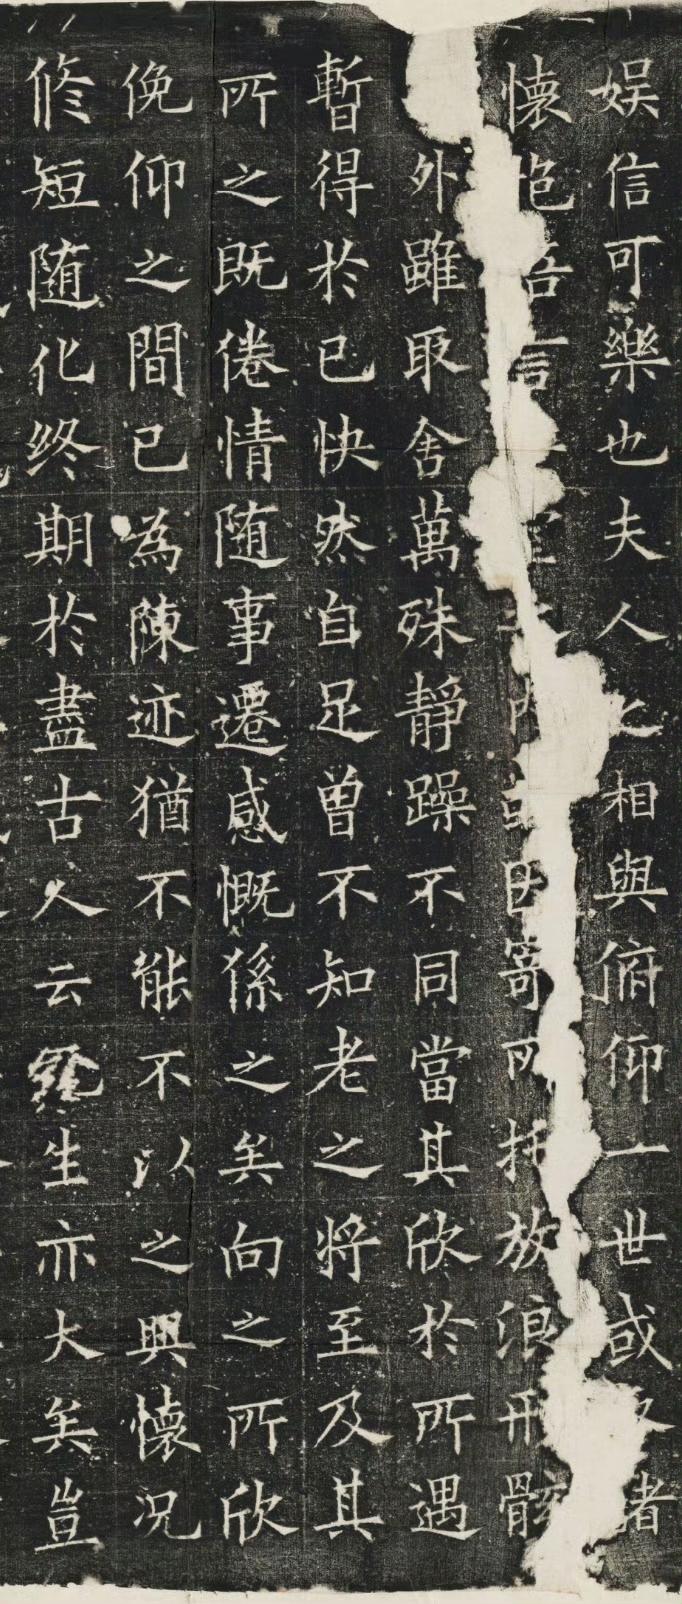 娛信可樂也夫人之相與俯仰一世或諸
懷抱吾言內或因寄所托放浪形骸
外雖取舍萬殊靜躁不同當其欣於所遇
暫得於己快然自足曾不知老之將至及其
所之既倦情随事遷感慨係之矣向之所欣
俛仰之間已為陳迹猶不能不以之興懷況
脩短随化終期於盡古人云死生亦大矣豈